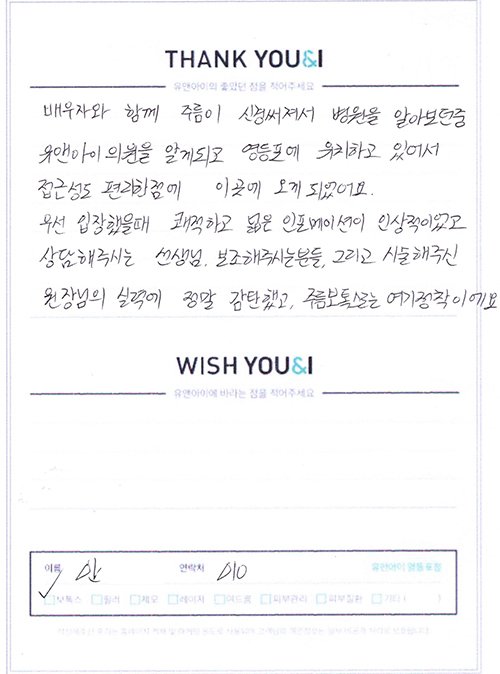 THANK YOU&I
유앤아이의 좋았던 점을 적어주세요
배우자와 함께 주름이 신경써져서 병원을 알아보던중
유앤아이의원을 알게되고 영등포에 위치하고 있어서
접근성도 편리한점에 이곳에 오게 되었어요.
우선 입장했을때 쾌적하고 넓은 인포메이션이 인상적이었고
상담해주시는 선생님, 보조해주시는분들, 그리고 시술해주신
원장님의 실력에 정말 감탄했고, 주름보톡스로는 여기정착이에요
WISH YOU&I
유앤아이에 바라는 점을 적어주세요
이름 안 연락처 010 유앤아이 영등포점
보톡스 필러 제모 레이저 여드름 피부관리 피부질환 기타 ( )